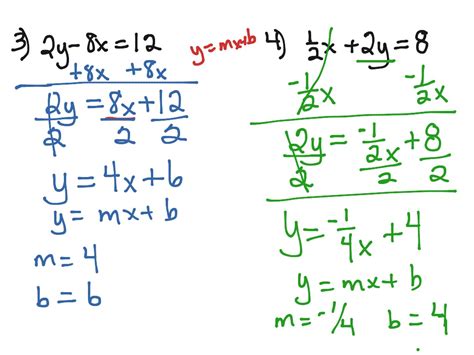 3) 2y-8x=12
+8x +8x
2y = 8x+12
2 2 2
y = 4x+6
y = mx+b
m=4
b=6
y=mx+b
4) 1/2x+2y=8
-1/2x -1/2x
2y = -1/2x + 8
2 2 2
y = -1/4x + 4
y = mx+b
m=-1/4 b=4